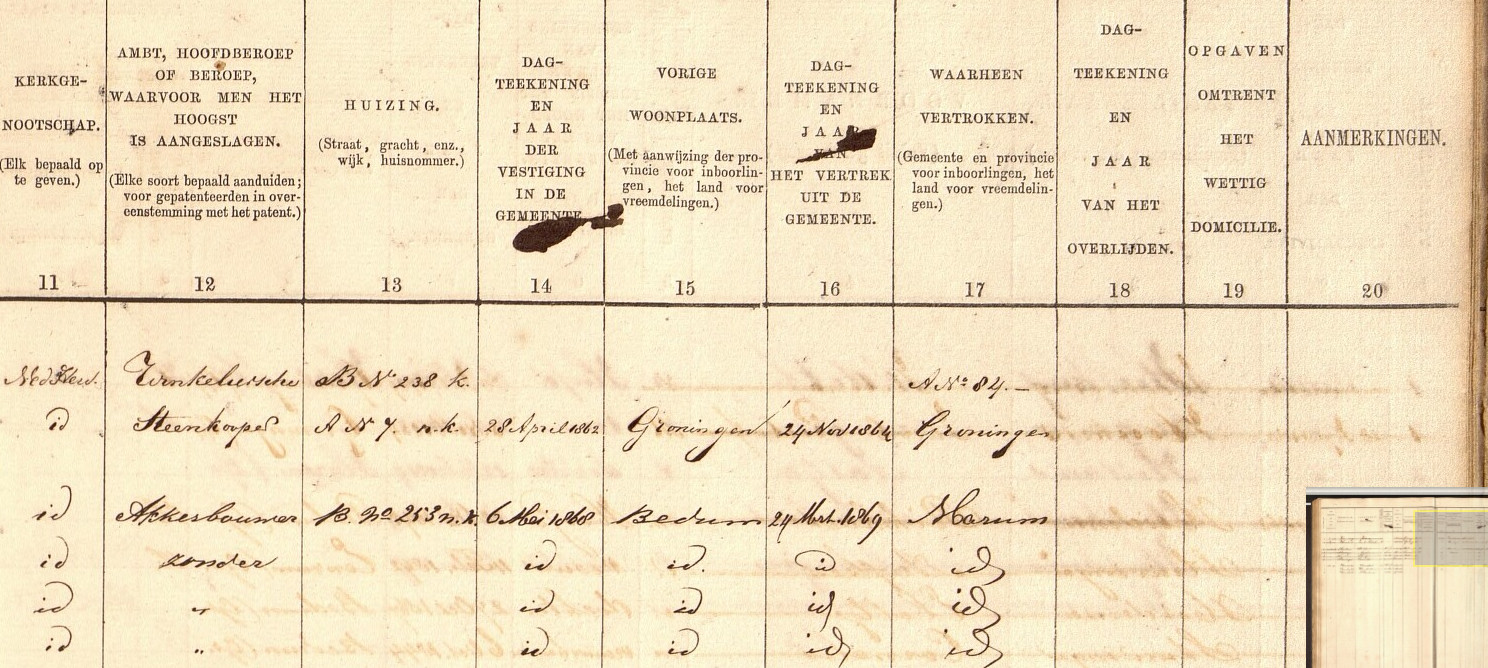 KERKGE-
NOOTSCHAP.
(Elk bepaald op
te geven.)
11
AMBT, HOOFDBEROEP
OF BEROEP,
WAARVOOR MEN HET
HOOGST
IS AANGESLAGEN.
(Elke soort bepaald aanduiden;
voor gepatenteerden in over-
eenstemming met het patent.)
12
HUIZING.
(Straat, gracht, enz.,
wijk, huisnommer.)
13
DAG-
TEEKENING
EN
JAAR
DER
VESTIGING
IN DE
GEMEENTE
14
VORIGE
WOONPLAATS.
(Met aanwijzing der pro-
vincie voor inboorlin-
gen, het land voor
vreemdelingen.)
15
DAG-
TEEKENING
EN
JAAR
VAN
HET VERTREK
UIT DE
GEMEENTE.
16
WAARHEEN
VERTROKKEN.
(Gemeente en provincie
voor inboorlingen, het
land voor vreemdelin-
gen.)
17
DAG-
TEEKENING
EN
JAAR
VAN HET
OVERLIJDEN.
18
OPGAVEN
OMTRENT
HET
WETTIG
DOMICILIE.
19
AANMERKINGEN.
20
Ned Herv. Winkeliersche B No 238 k. A No 84. –
id Steenkooper A No 7. n. k. 28 April 1862 Groningen 24 Nov 1864 Groningen
id Akkerbouwer B. No 253 n. k. 6 Mei 1868 Bedum 24 Mrt. 1869 Marum
id zonder id id. id id
id " id id id id
id " id id id id